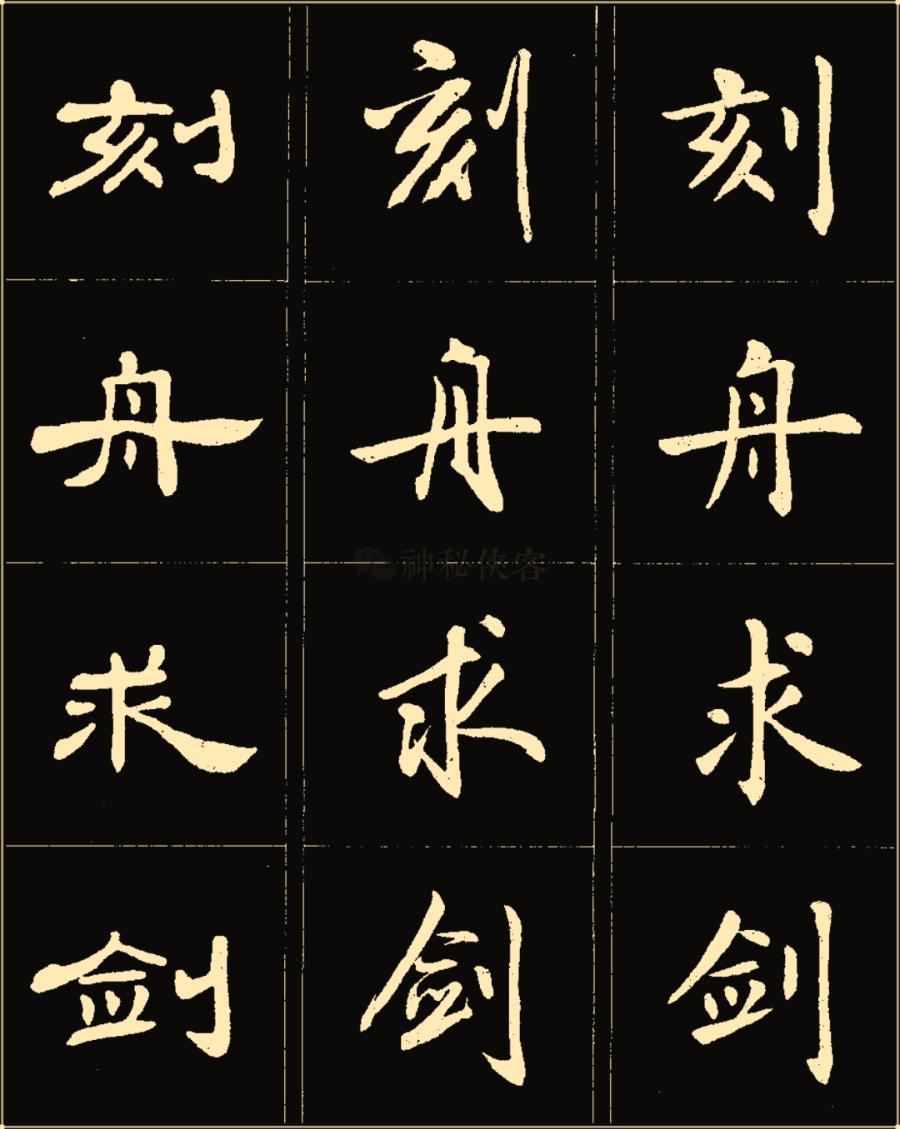 刻舟求剑
刻舟求剑
刻舟求剑
神秘侠客